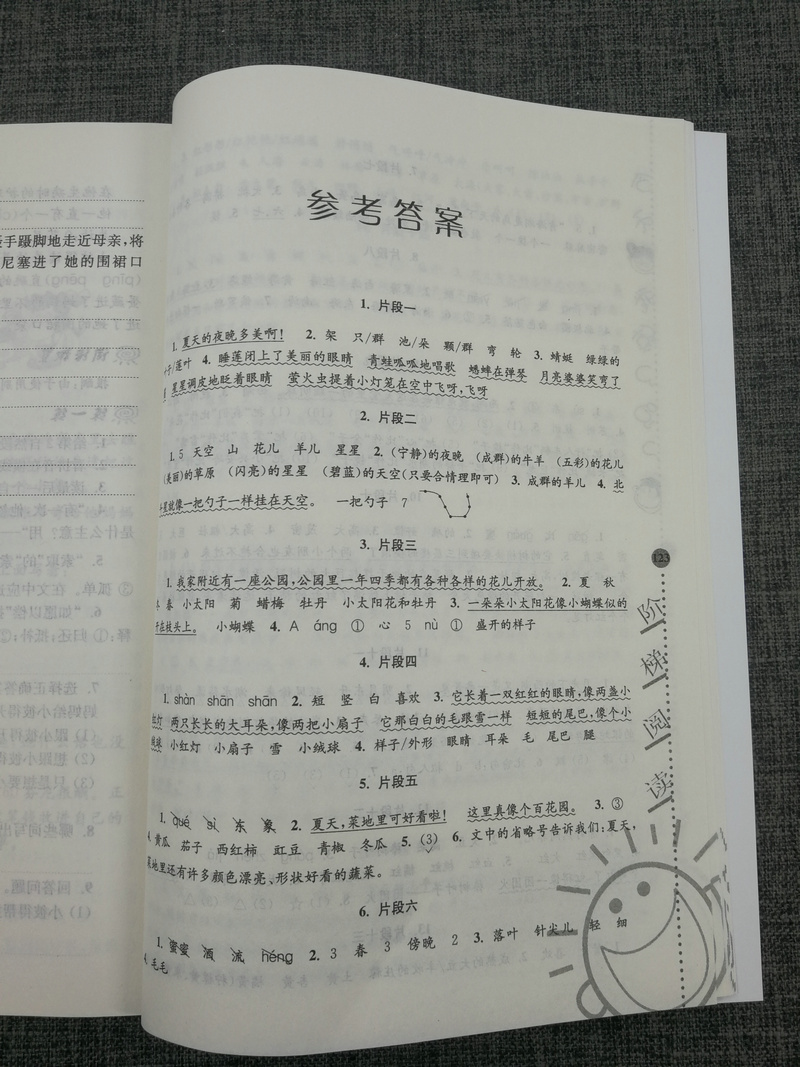 蹑手蹑脚地走近母亲,将
尼塞进了她的围裙口
4. "穷
是什么主意?用"—
5. "索取"的"索
③ 孤单。在文中应
6. "如愿以偿"
释:① 归还;抵补;②
7. 选择正确答
妈妈给小彼得
(1) 跟小彼得
(2) 想跟小彼
(3) 只是想要小
8. 哪些问句写出
9. 回答问题。
(1) 小彼得帮
参考答案
1. 片段一
1. 夏天的夜晚多美啊! 2. 架 只/群 池/朵 颗/群 弯 轮 3. 蜻蜓 绿绿的
叶子/落叶 4. 睡莲闭上了美丽的眼睛 青蛙呱呱地唱歌 蟋蟀在弹琴 月亮婆婆笑弯了
星星调皮地眨着眼睛 萤火虫提着小灯笼在空中飞呀,飞呀
2. 片段二
1. 5 天空 山 花儿 羊儿 星星 2. (宁静)的夜晚 (成群)的牛羊 (五彩)的花儿
(美丽)的草原 (闪亮)的星星 (碧蓝)的天空(只要合情理即可) 3. 成群的羊儿 4. 北
斗星就像一把勺子一样挂在天空。 一把勺子 7
3. 片段三
1. 我家附近有一座公园,公园里一年四季都有各种各样的花儿开放。 2. 夏 秋
冬 春 小太阳 菊 蜡梅 牡丹 小太阳花和牡丹 3. 一朵朵小太阳花像小蝴蝶似的
在枝头上。 小蝴蝶 4. A áng ① 心 5 nù ① 盛开的样子
4. 片段四
1. shàn shān shān 2. 短 竖 白 喜欢 3. 它长着一双红红的眼睛,像两盏小
红灯 两只长长的大耳朵,像两把小扇子 它那白白的毛跟雪一样 短短的尾巴,像个小
绒球 小红灯 小扇子 雪 小绒球 4. 样子/外形 眼睛 耳朵 毛 尾巴 腿
5. 片段五
1. qué sì 东 象 2. 夏天,菜地里可好看啦! 这里真像个百花园。 3. ③
4. 黄瓜 茄子 西红柿 豇豆 青椒 冬瓜 5. (3) 6. 文中的省略号告诉我们:夏天,
菜地里还有许多颜色漂亮、形状好看的蔬菜。
6. 片段六
1. 蜜蜜 酒 流 héng 2. 3 春 3 傍晚 2 3. 落叶 针尖儿 轻 细
4. 毛毛
123
阶
梯
阅
读